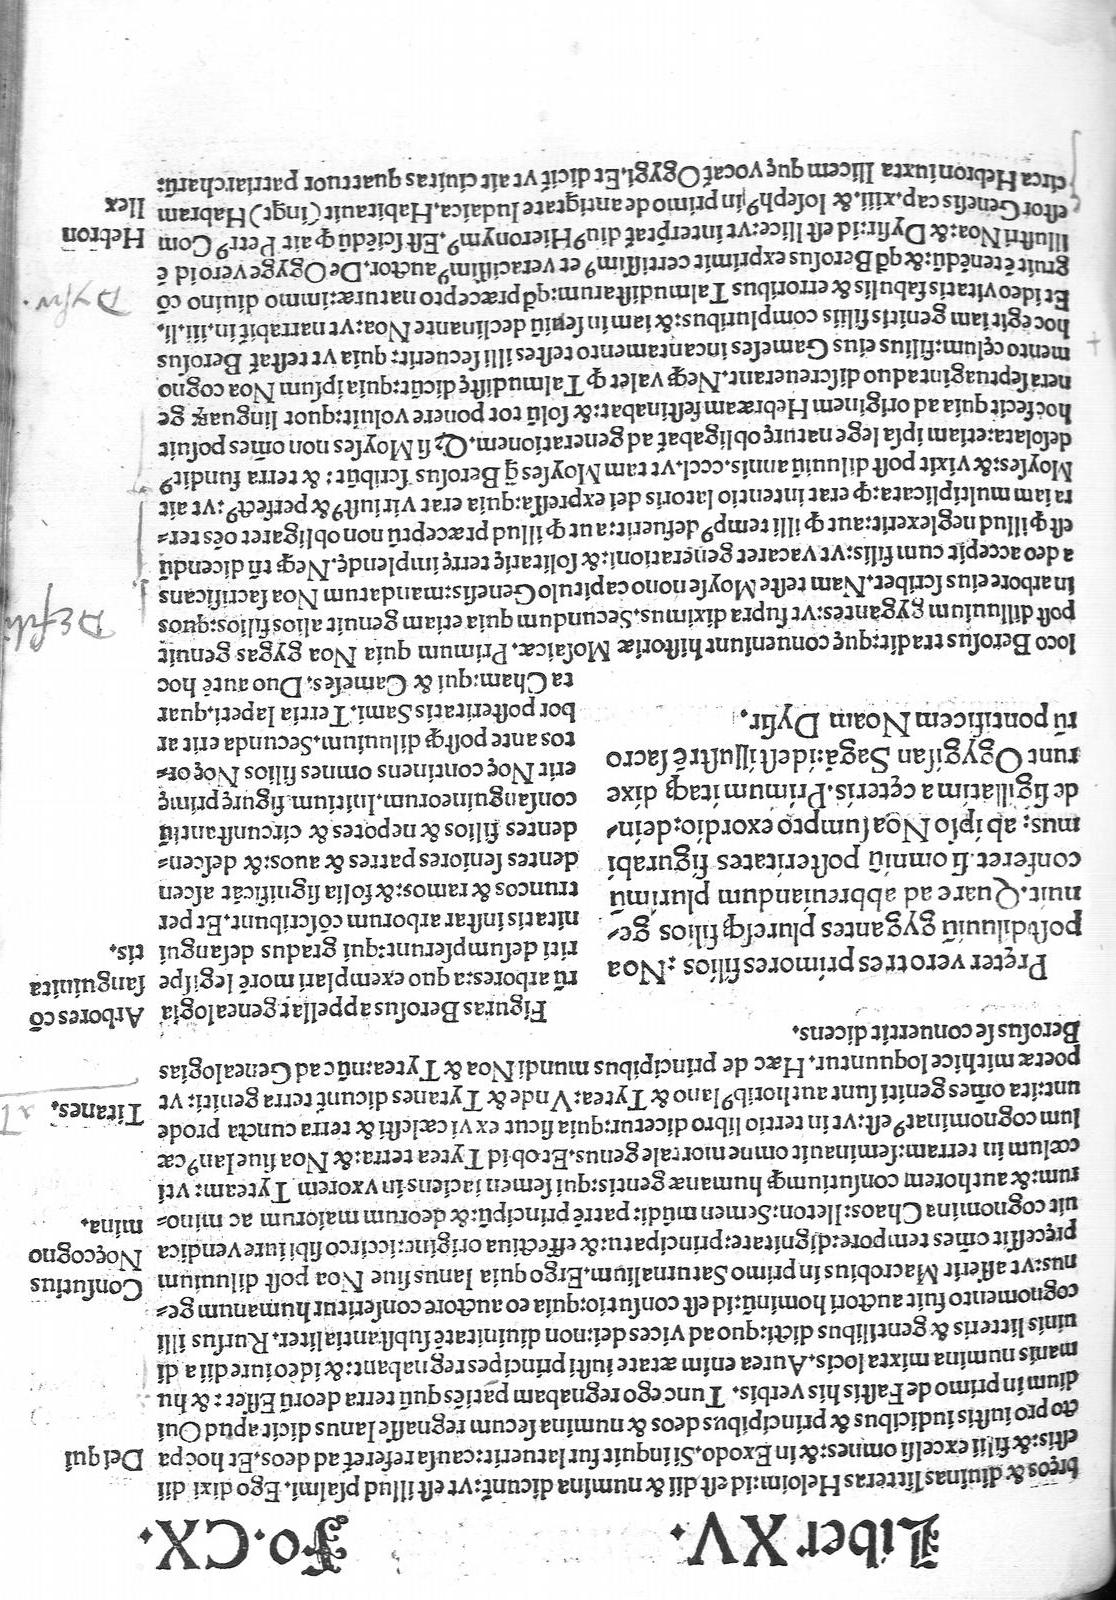 Liber XV. Fo.CX.
bręos & diuinas litteras Heloim: id est dii & numina dicunt᷑: vt est illud psalmi. Ego dixi dii
estis: & filii excelsi omnes: & in Exodo. Si inquit fur latuerit: causa referet᷑ ad deos. Et hoc pa
cto pro iustis iudicibus & principibus deos & numina secum regnasse Ianus dicit apud Oui
dium in primo de Fastis his verbis. Tunc ego regnabam patiēs quū terra deorū Esset: & hu
manis numina mixta locis. Aurea enim ætate iusti principes regnabant: & ideo iure dii a di
uinis litteris & gentilibus dicti: quo ad vices dei: non diuinitatē substantialiter. Rursus illi
cognomento fuit auctori hominū: id est consutio: quia eo auctore conseritur humanum ge-
nus: vt asserit Macrobius in primo Saturnalium. Ergo quia Ianus siue Noa post diluuium
pręcessit oēs tempore: dignitate: principatu: & effectiua origine: iccirco sibi iure vendica
uit cognomina Chaos: Ileton: Semen mūdi: patrē principū: & deorum maiorum ac mino-
rum: & authorem consutiumqꝫ humanæ gentis: qui semen iaciens in vxorem Tyteam: vti
cœlum in terram: seminauit omne mortale genus. Et ob id Tytea terra: & Noa siue Ianꝰ cæ
lum cognominatꝰ est: vt in tertio libro dicetur: quia sicut ex vi cælesti & terra cuncta prode
unt: ita oēs geniti sunt authoribꝰ Iano & Tytea: Vnde & Tytanes dicunt᷑ terra geniti: vt
poetæ mithice loquuntur. Hæc de principibus mundi: Noa & Tytea: nūc ad Genealogias
Berosus se conuertit dicens.
Pręter vero tres primores filios: Noa
post diluuiū gygantes pluresqꝫ filios ge-
nuit. Quare ad abbreuiandum plurimū
conferet: si omniū posteritates figurabi
mus: ab ipso Noa sumpto exordio: dein-
de sigillatim a cęteris. Primum itaqꝫ dixe
runt Ogygisan Sagā: id est illustrē sacro
rū pontificem Noam Dysir.
Figuras Berosus appellat genealogia
rū arbores: a quo exemplari morē legispe
riti desumpserunt: qui gradus desangui
nitatis instar arborum cōscribunt. Et per
truncos & ramos: & folia significāt ascen
dentes seniores patres & auos: & descen-
dentes filios & nepotes & circunstantiū
consanguineorum. Initium figurę primę
erit Noę continens omnes filios Noę or-
tos ante postqꝫ diluuium. Secunda erit ar
bor posteritatis Sami. Tertia Iapeti. quar
ta Cham: qui & Cameses. Duo autē hoc
loco Berosus tradit: quę conueniunt historiæ Mosaicæ. Primum quia Noa gygas genuit
post diluuium gygantes: vt supra diximus. Secundum quia etiam genuit alios filios: quos
in arbore eius scribet. Nam teste Moyse nono capitulo Genesis: mandatum Noa sacrificans
a deo accepit cum filiis: vt vacaret generationi: & solitarię terrę implendę. Neqꝫ tn̄ dicendū
est ꝙ illud neglexerit: aut ꝙ illi tempꝰ defuerit: aut ꝙ illud præceptū non obligaret oēs: ter-
ra iam multiplicata: ꝙ erat intentio latoris dei expressa: quia erat vir iustꝰ & perfectꝰ: vt ait
Moyses: & vixit post diluuiū annis. cccl. vt tam Moyses ꝗ̄ Berosus scribūt: & terra fundit᷑
desolata: etiam ipsa lege naturę obligabat᷑ ad generationem. Qꝫ si Moyses non oēs posuit
hoc fecit quia ad originem Hebræam festinabat: & solū tot ponere voluit: quot linguaꝝ ge
nera septuaginta duo discreuerant. Neqꝫ valet ꝙ Talmudistę dicūt: quia ipsum Noa cogno
mento cęlum: filius eius Cameses incantamento testes illi secuerit: quia vt testat᷑ Berosus
hoc egit iam genitis filiis compluribus: & iam in seniū declinante Noa: vt narrabit᷑ in. iii. li.
Et ideo vitatis fabulis & erroribus Talmudistarum: qd̄ præcepto naturæ: immo diuino cō
gruit ē tenēdū: & qd̄ Berosus exprimit certissimꝰ et veracissimꝰ auctor. De Ogyge vero id ē
illustri Noa: & Dysir: id est Ilice: vt interp̄tat᷑ diuꝰ Hieronymꝰ. Est sciēdū ꝙ ait Petrꝰ Com
estor Genesis cap. xiii. & Iosephꝰ in primo de antigtate Iudaica. Habitauit (ingt) Habram
circa Hebron iuxta Ilicem quę vocat᷑ Ogygi. Et dicit᷑ vt ait ciuitas quattuor patriarcharū:
Dei qui
Consutius
Noę cogno
mina.
Titanes.
Arbores cō
sanguinita
tis.
Hebron
Ilex
Dysir.